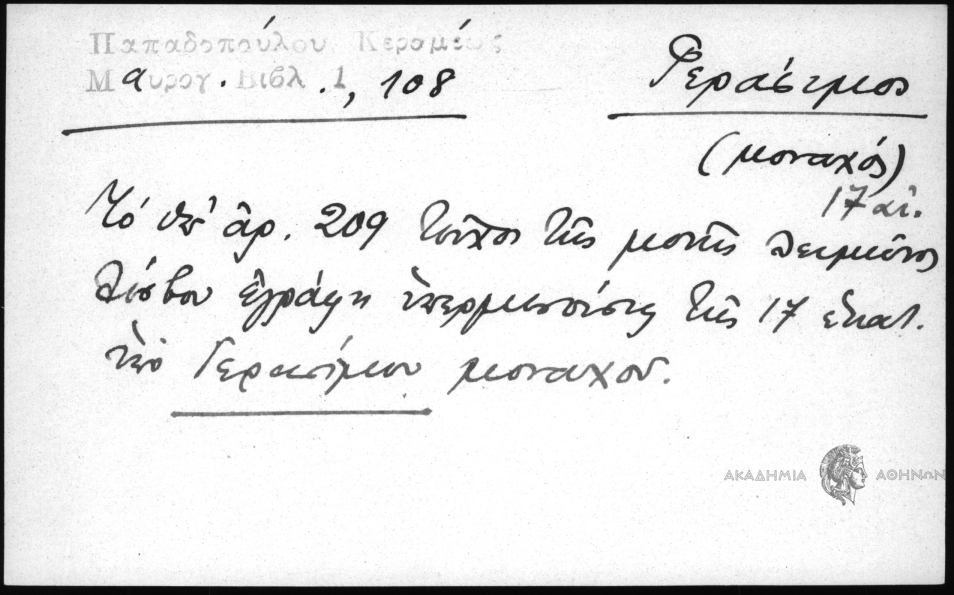 Παπαδοπούλου Κεραμέως
Μαυρογ. Βιβλ. 1, 108
Γεράσιμος
(μοναχός)
17 αἰ.
Τό ὑπ' ἀρ. 209 τεῦχος τῆς μονῆς Λειμῶνος
Λέσβου ἐγράφη τῆς 17 ἑκατ.
ὑπό Γερασίμου μοναχοῦ.
ΑΚΑΔΗΜΙΑ ΑΘΗΝΩΝ